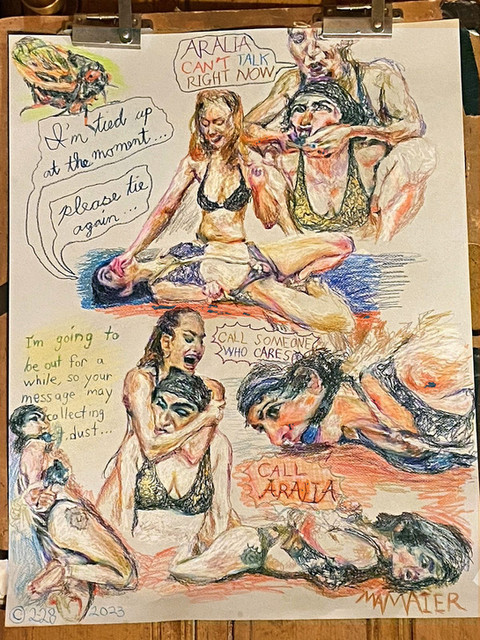 ARALIA
CAN'T TALK
RIGHT NOW
I'm tied up
at the moment...
please tie
again...
I'm going to
be out for a
while, so your
message may
collecting
dust...
CALL SOMEONE
WHO CARES
CALL
ARALIA
© 228 2023
MAMAIER